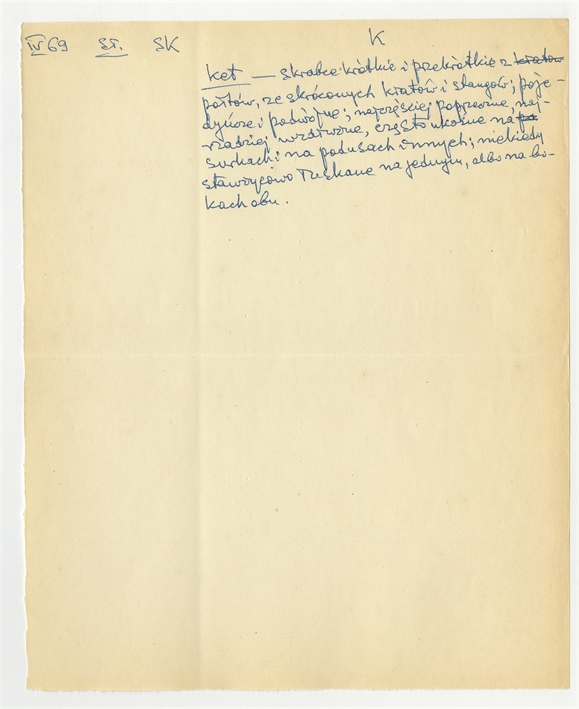 IV 69 ST. SK
K
ket — skrabce krótkie i przekrótkie z kratow
portów, ze skróconych kratów i stangów; poje-
dyńcze i podwójne; najczęściej poprzeczne, naj-
rzadziej wzdłużne, często ukośne na pa
surkach i na podusach innych; niekiedy
stawycowo na jednym, albo na bo-
kach obu.